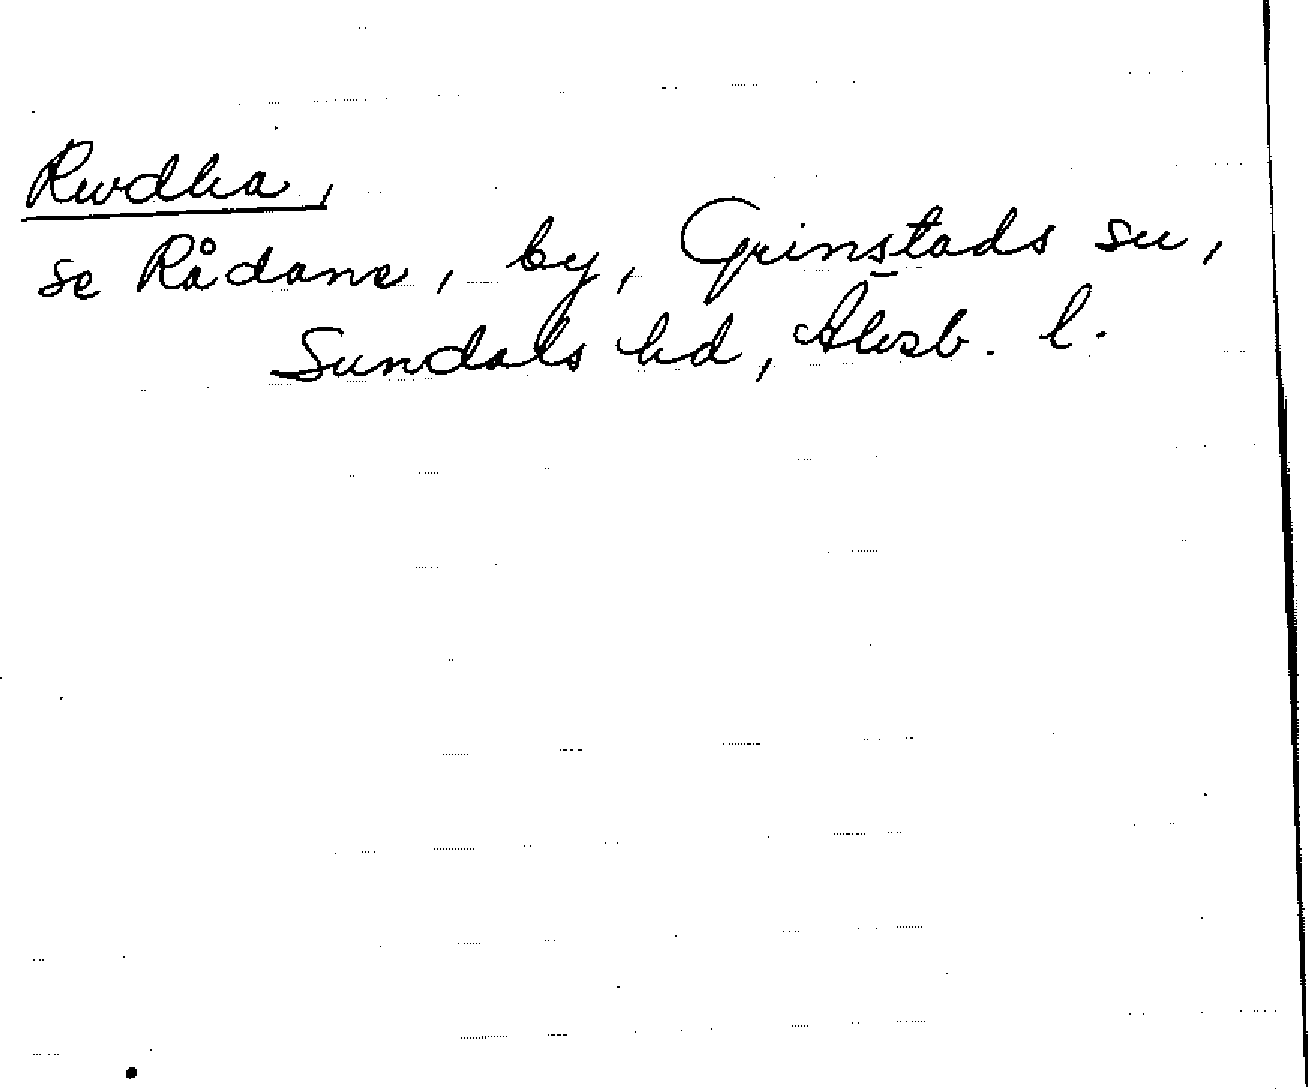 Rwdha,
se Rådane, by, Grinstads sn,
Sundals hd, Älvsb. l.